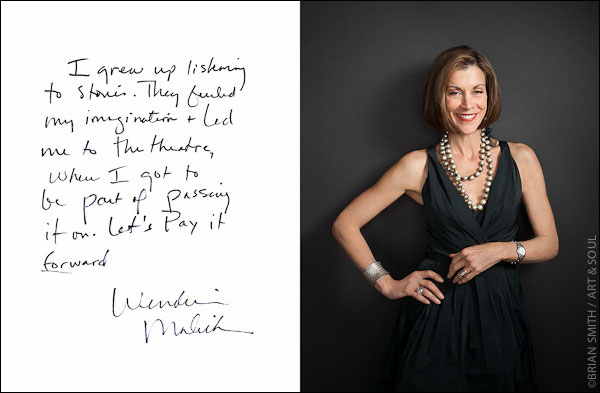 I grew up listening
to stories. They fueled
my imagination + led
me to the theatre,
when I got to
be part of passing
it on. Let's Pay it
forward
Wendie
Malick
©BRIAN SMITH / ART & SOUL